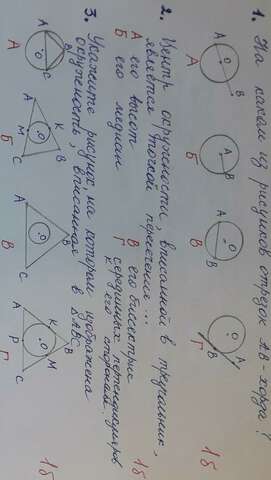 1. На каком из рисунков отрезок АВ - хорда?
А Б В Г 1б
2. Центр окружности, вписанной в треугольник,
является точкой пересечения...
А его высот В его биссектрис
Б его медиан Г серединных перпендикуляров
к его сторонам. 1б
3. Укажите рисунок, на котором изображена
окружность, вписанная в ΔАВС
А Б В Г 1б